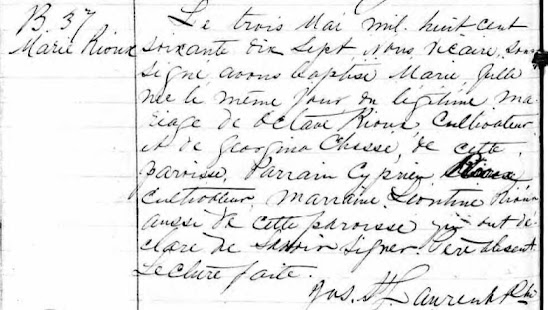 B 37
Marie Rioux
Le trois Mai mil huit cent
soixante dix sept, nous vicaire sous
signé avons baptisé Marie, fille
née le même jour du légitime ma
riage de Octave Rioux cultivateur
et de Georgina Chasse, de cette
paroisse, Parrain Cyprien Rioux
cultivateur, Marraine Leontine Rioux
aussi de cette paroisse qui ont dé
claré de savoir signer. Père absent.
Lecture faite.
Jos. St Laurent Ptre